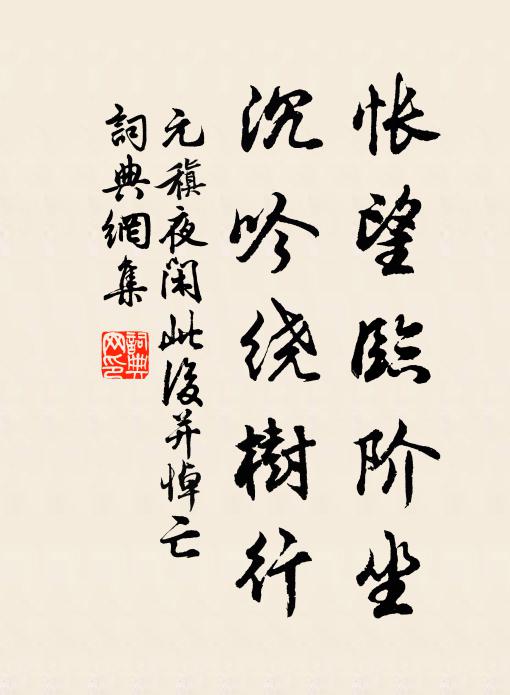 怅望临阶坐
沉吟绕樹行
元稹夜闲此後并悼亡
詞典網集
詞典网印